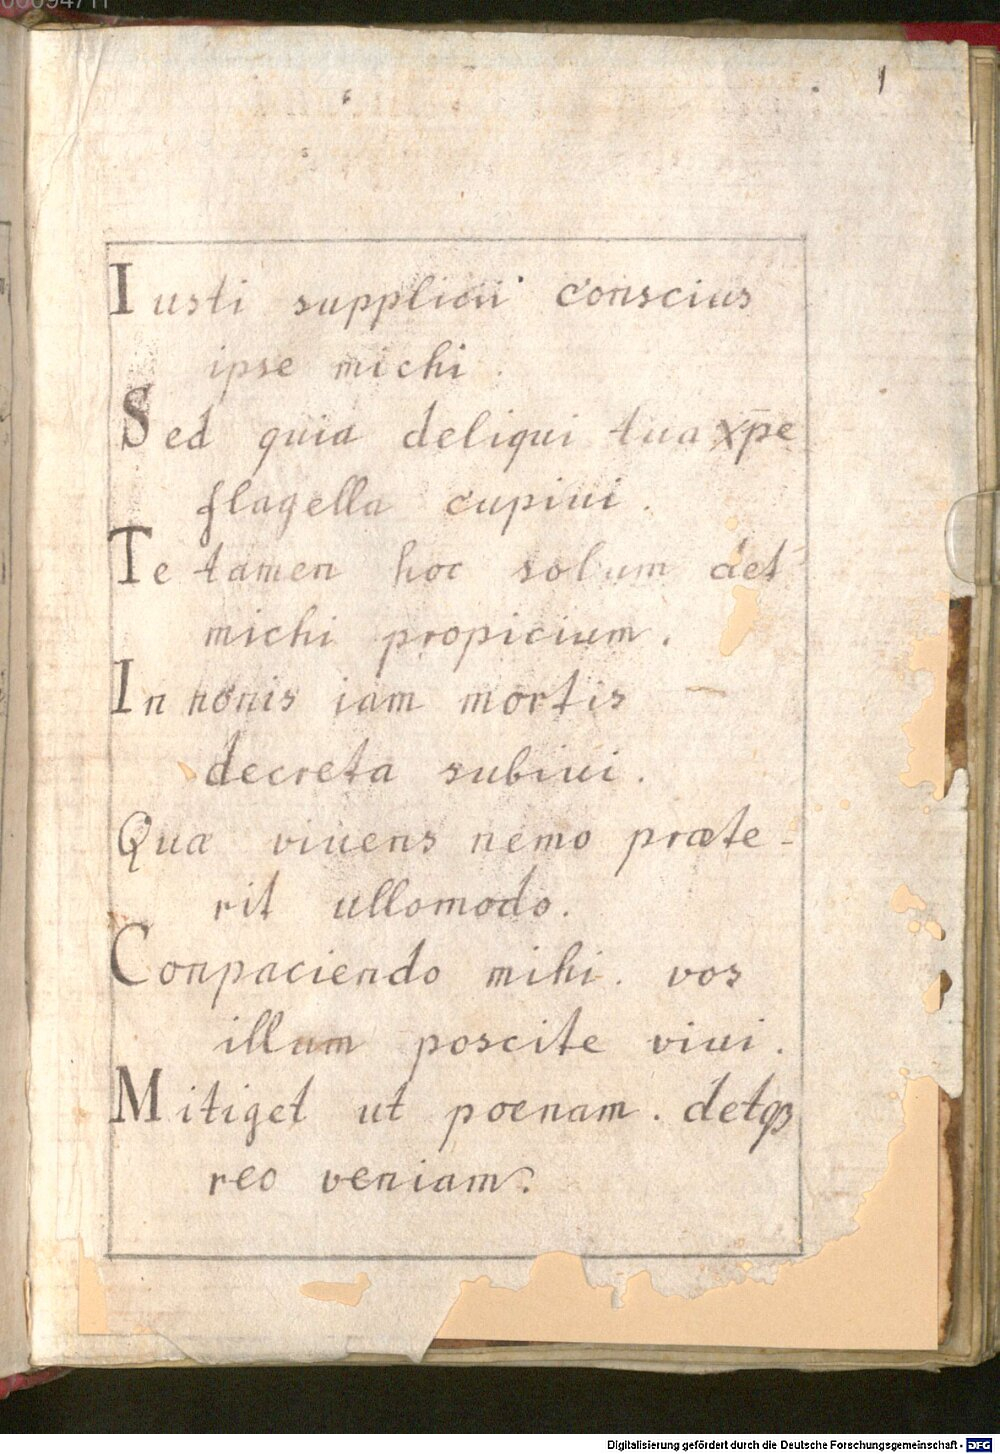 1
Iusti supplicii conscius
ipse michi.
Sed quia deliqui tua xp̄e
flagella cupiui.
Te tamen hoc solum det
michi propicium.
In nonis iam mortis
decreta subiui.
Quæ viuens nemo præte-
rit ullomodo.
Conpaciendo mihi. vos
illum poscite viui.
Mitiget ut poenam. detqꝫ
reo veniam.
Digitalisierung gefördert durch die Deutsche Forschungsgemeinschaft - DFG